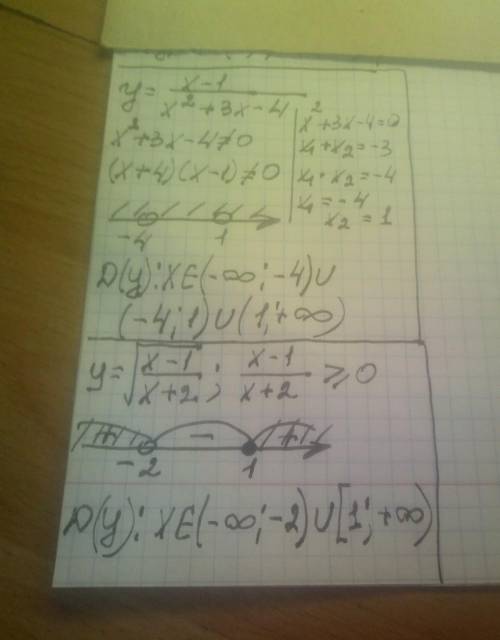 y = (x-1)/(x²+3x-4)
x²+3x-4≠0
(x+4)(x-1)≠0
x²+3x-4=0
x₁+x₂=-3
x₁·x₂=-4
x₁=-4
x₂=1
-4 1
D(y): x∈(-∞;-4)∪
(-4;1)∪(1;+∞)
y=√((x-1)/(x+2)); (x-1)/(x+2) ≥ 0
+ - +
-2 1
D(y): x∈(-∞;-2)∪[1;+∞)